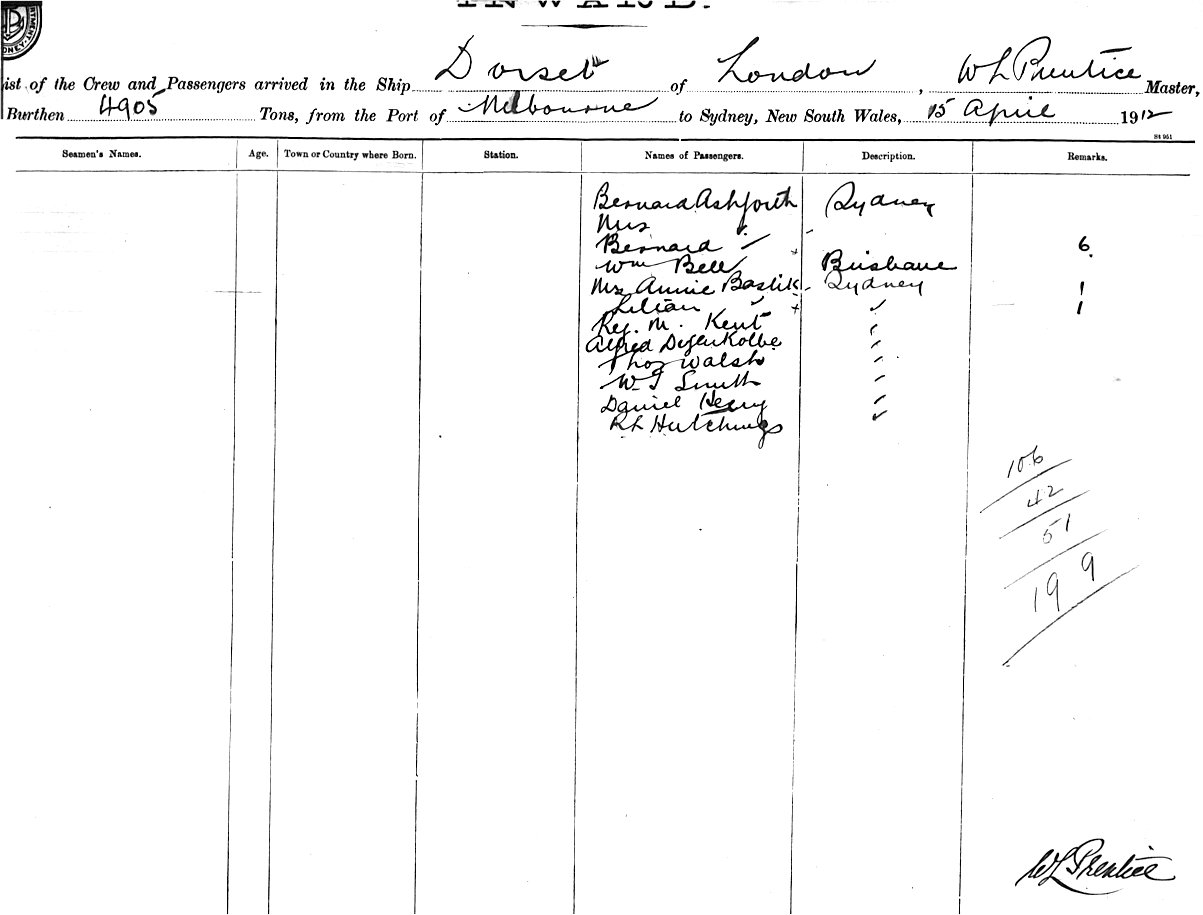 INWARD.
ist of the Crew and Passengers arrived in the Ship Dorset of London, W L Prentice Master,
Burthen 4905 Tons, from the Port of Melbourne to Sydney, New South Wales, 15 April 1912
S4 951
Seamen's Names. Age. Town or Country where Born. Station. Names of Passengers. Description. Remarks.
Bernard Ashforth Sydney
Mrs "
Bernard " 6
Wm Bell Brisbane
Mrs Annie Bastik Sydney 1
Lilian " " 1
Reg. M. Kent "
Alfred Degenkolbe "
Thos Walsh "
W J Smith "
Daniel Henry "
R L Hutchings "
106
42
51
199
W L Prentice